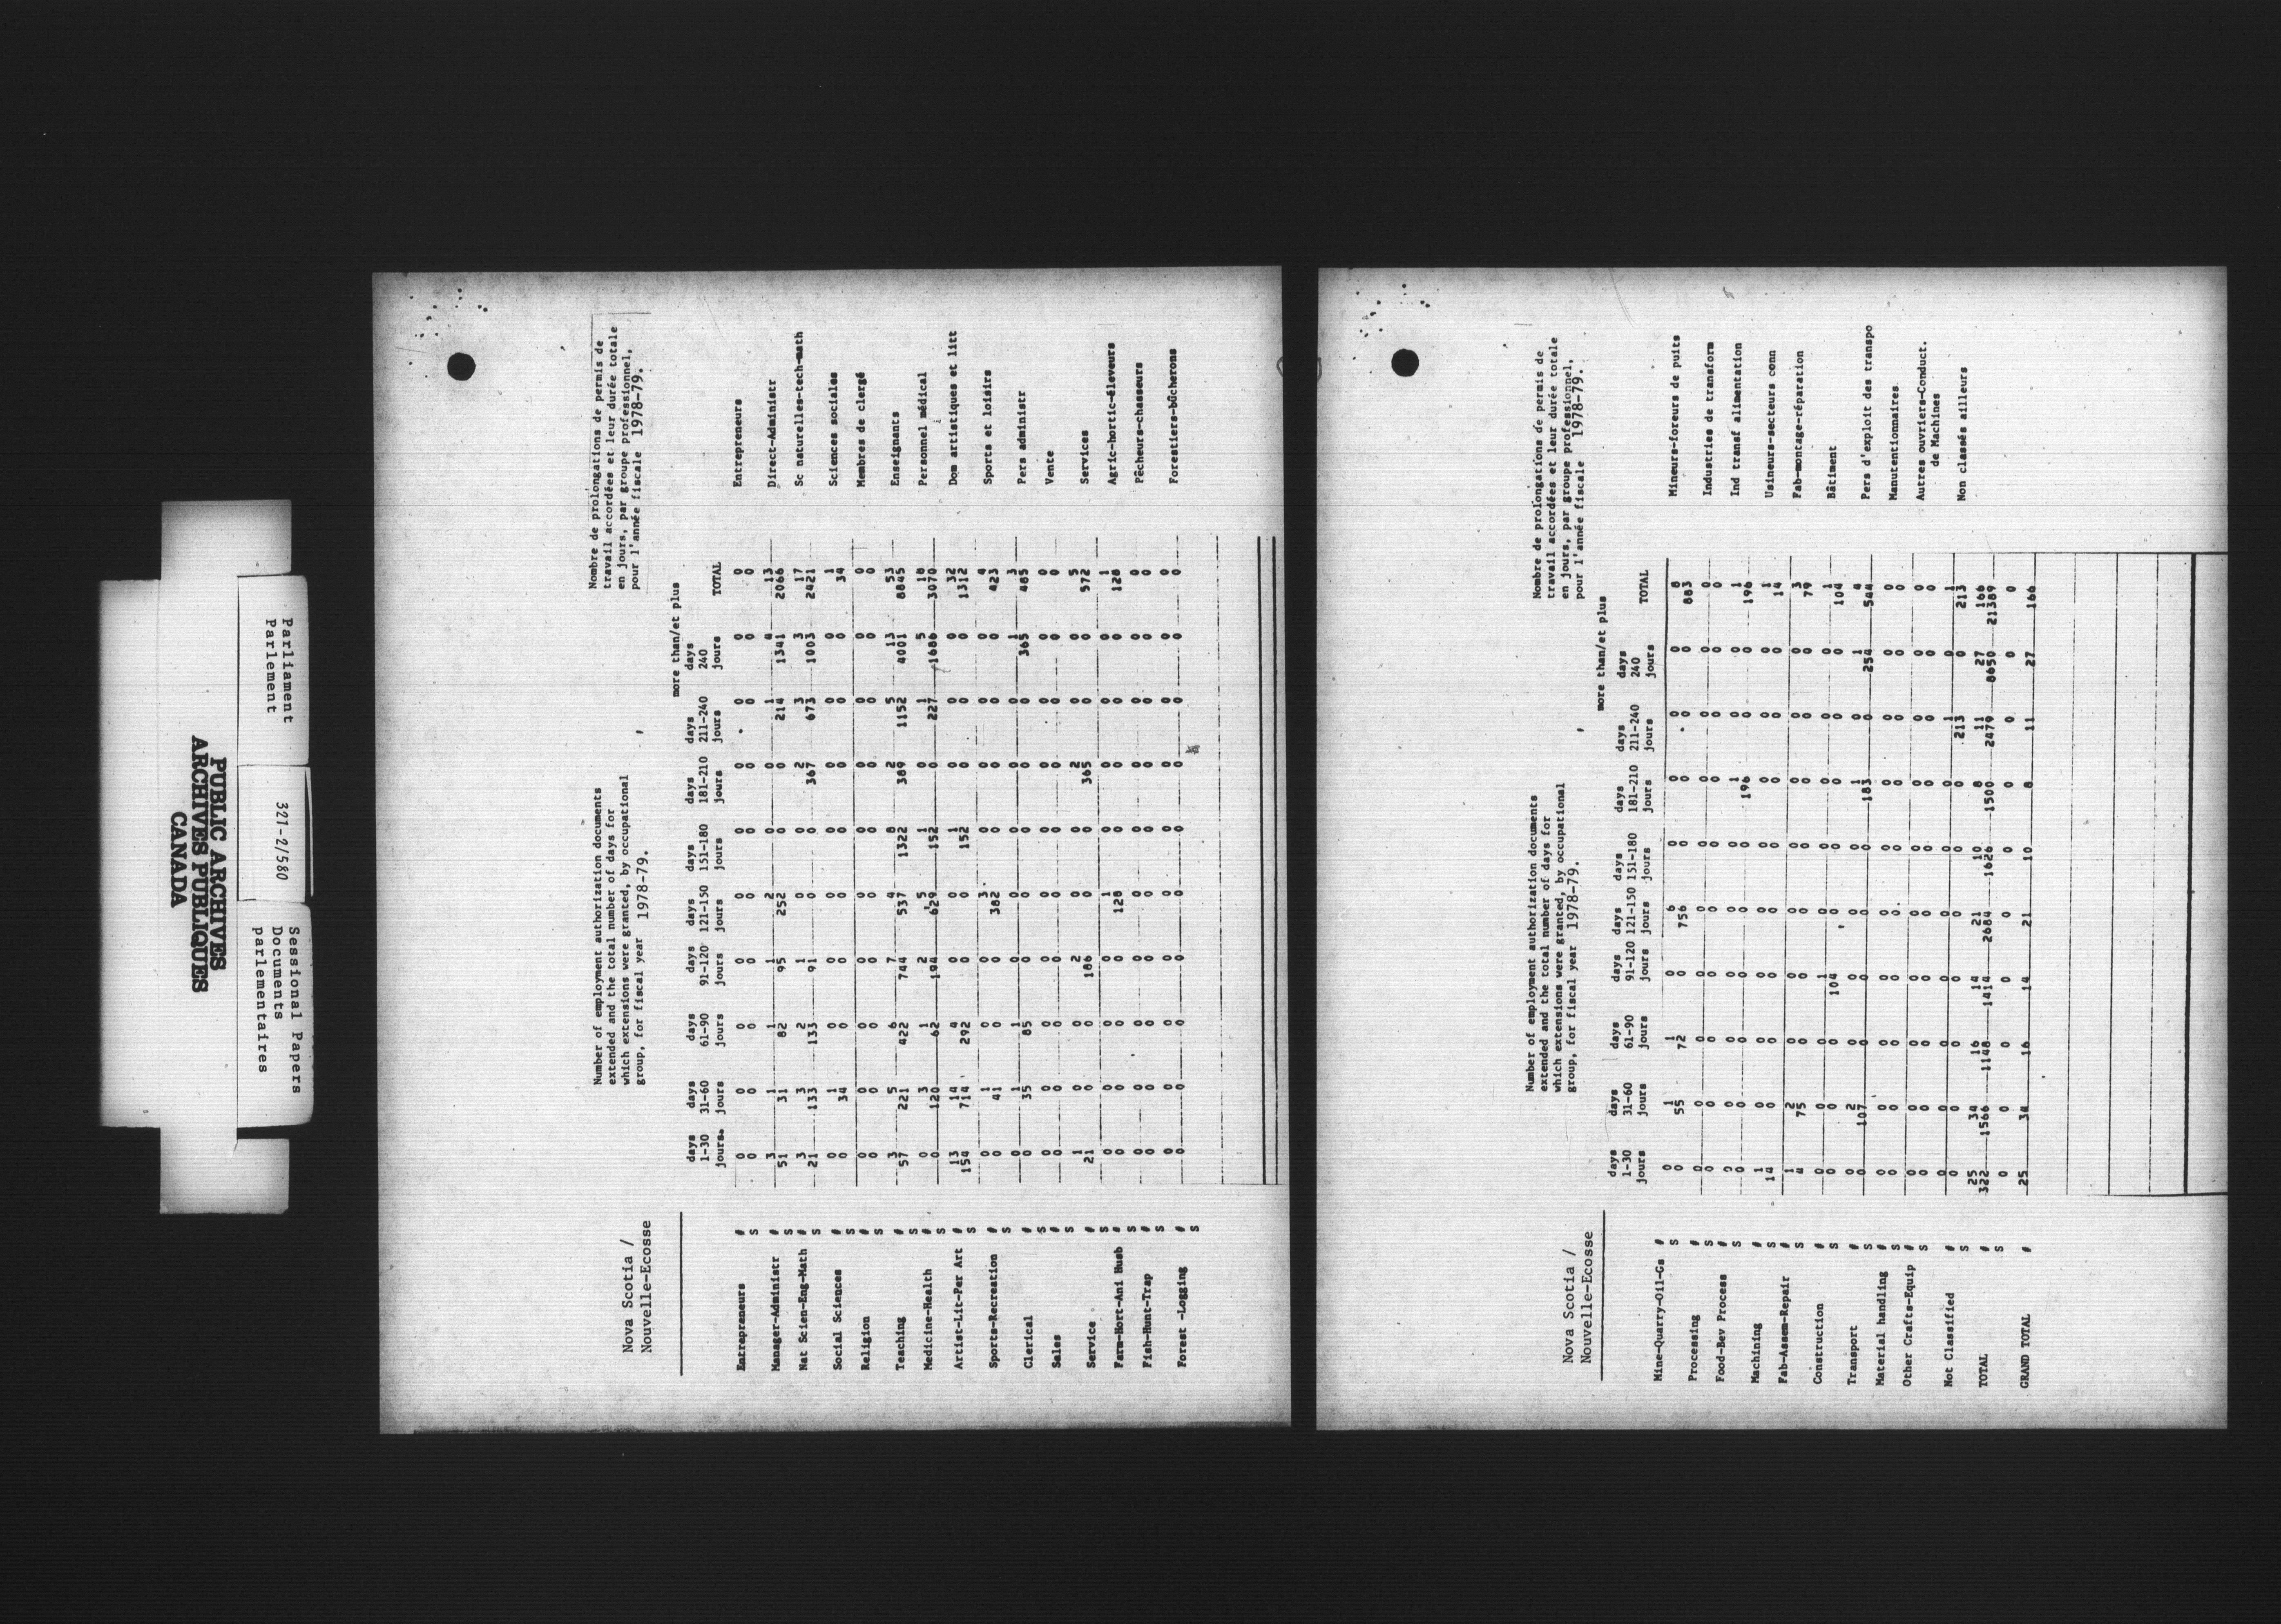 PUBLIC ARCHIVES
ARCHIVES PUBLIQUES
CANADA
Parliament
Parlement
321-2/580
Sessional Papers
Documents
parlementaires
Nova Scotia /
Nouvelle-Ecosse
Number of employment authorization documents
extended and the total number of days for
which extensions were granted, by occupational
group, for fiscal year 1978-79.
Nombre de prolongations de permis de
travail accordées et leur durée totale
en jours, par groupe professionnel,
pour l'année fiscale 1978-79.
more than/et plus
days days days days days days days days days
1-30 31-60 61-90 91-120 121-150 151-180 181-210 211-240 240 TOTAL
jours. jours jours jours jours jours jours jours jours
Entrepreneurs # 0 0 0 0 0 0 0 0 0 0 Entrepreneurs
S 0 0 0 0 0 0 0 0 0 0
Manager-Administr # 3 1 1 1 2 0 0 1 4 13 Direct-Administr
S 51 31 82 95 252 0 0 214 1341 2066
Nat Scien-Eng-Math # 3 3 2 1 0 0 2 3 3 17 Sc naturelles-tech-math
S 21 133 133 91 0 0 367 673 1003 2421
Social Sciences # 0 1 0 0 0 0 0 0 0 1 Sciences sociales
S 0 34 0 0 0 0 0 0 0 34
Religion # 0 0 0 0 0 0 0 0 0 0 Membres de clergé
S 0 0 0 0 0 0 0 0 0 0
Teaching # 3 5 6 7 4 8 2 5 13 53 Enseignants
S 57 221 422 744 537 1322 389 1152 4001 8845
Medicine-Health # 0 3 1 2 5 1 0 1 5 18 Personnel médical
S 0 120 62 194 629 152 0 227 1686 3070
Artist-Lit-Per Art # 13 14 4 0 0 1 0 0 0 32 Dom artistiques et litt
S 154 714 292 0 0 152 0 0 0 1312
Sports-Recreation # 0 1 0 0 3 0 0 0 0 4 Sports et loisirs
S 0 41 0 0 382 0 0 0 0 423
Clerical # 0 1 1 0 0 0 0 0 1 3 Pers administr
S 0 35 85 0 0 0 0 0 365 485
Sales # 0 0 0 0 0 0 0 0 0 0 Vente
S 0 0 0 0 0 0 0 0 0 0
Service # 1 0 0 2 0 0 2 0 0 5 Services
S 21 0 0 186 0 0 365 0 0 572
Farm-Hort-Ani Husb # 0 0 0 0 1 0 0 0 0 1 Agric-hortic-éleveurs
S 0 0 0 0 128 0 0 0 0 128
Fish-Hunt-Trap # 0 0 0 0 0 0 0 0 0 0 Pêcheurs-chasseurs
S 0 0 0 0 0 0 0 0 0 0
Forest -Logging # 0 0 0 0 0 0 0 0 0 0 Forestiers-bûcherons
S 0 0 0 0 0 0 0 0 0 0
Nova Scotia /
Nouvelle-Ecosse
Number of employment authorization documents
extended and the total number of days for
which extensions were granted, by occupational
group, for fiscal year 1978-79.
Nombre de prolongations de permis de
travail accordées et leur durée totale
en jours, par groupe professionnel,
pour l'année fiscale 1978-79.
more than/et plus
days days days days days days days days days
1-30 31-60 61-90 91-120 121-150 151-180 181-210 211-240 240 TOTAL
jours jours jours jours jours jours jours jours jours
Mine-Quarry-Oil-Gs # 0 1 1 0 6 0 0 0 0 8 Mineurs-foreurs de puits
S 0 55 72 0 756 0 0 0 0 883
Processing # 0 0 0 0 0 0 0 0 0 0 Industries de transform
S 0 0 0 0 0 0 0 0 0 0
Food-Bev Process # 0 0 0 0 0 0 1 0 0 1 Ind transf alimentation
S 0 0 0 0 0 0 196 0 0 196
Machining # 1 0 0 0 0 0 0 0 0 1 Usineurs-secteurs conn
S 14 0 0 0 0 0 0 0 0 14
Fab-Assem-Repair # 1 2 0 0 0 0 0 0 0 3 Fab-montage-réparation
S 4 75 0 0 0 0 0 0 0 79
Construction # 0 0 0 1 0 0 0 0 0 1 Bâtiment
S 0 0 0 104 0 0 0 0 0 104
Transport # 0 2 0 0 0 0 1 0 1 4 Pers d'exploit des transpo
S 0 107 0 0 0 0 183 0 254 544
Material handling # 0 0 0 0 0 0 0 0 0 0 Manutentionnaires
S 0 0 0 0 0 0 0 0 0 0
Other Crafts-Equip # 0 0 0 0 0 0 0 0 0 0 Autres ouvriers-Conduct.
S 0 0 0 0 0 0 0 0 0 0 de Machines
Not Classified # 0 0 0 0 0 0 0 1 0 1 Non classés ailleurs
S 0 0 0 0 0 0 0 213 0 213
TOTAL # 25 34 16 14 21 10 8 11 27 166
S 322 1566 1148 1414 2684 1626 1500 2479 8650 21389
0 0 0 0 0 0 0 0 0 0
GRAND TOTAL # 25 34 16 14 21 10 8 11 27 166